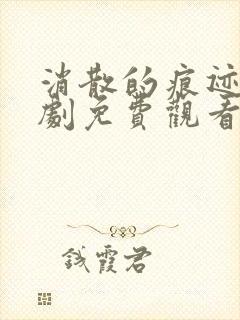 消散的痕迹
劇免費觀看
钱霞君